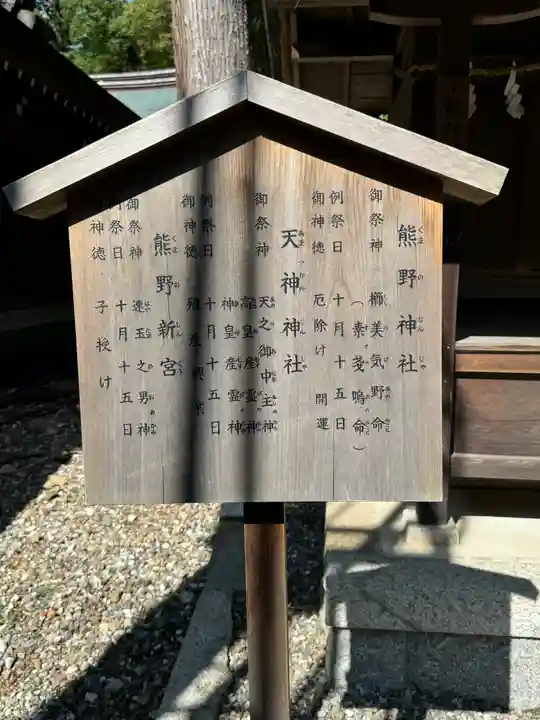 熊野神社
くまのじんじゃ
御祭神 櫛美気野命
(素戔嗚命)
例祭日 十月十五日
御神徳 厄除け 開運
天神神社
御祭神 天之御中主神
高皇産霊神
神皇産霊神
例祭日 十月十五日
御神徳
熊野新宮
くまのしんぐう
御祭神 速玉之男神
例祭日 十月十五日
御神徳 子授け